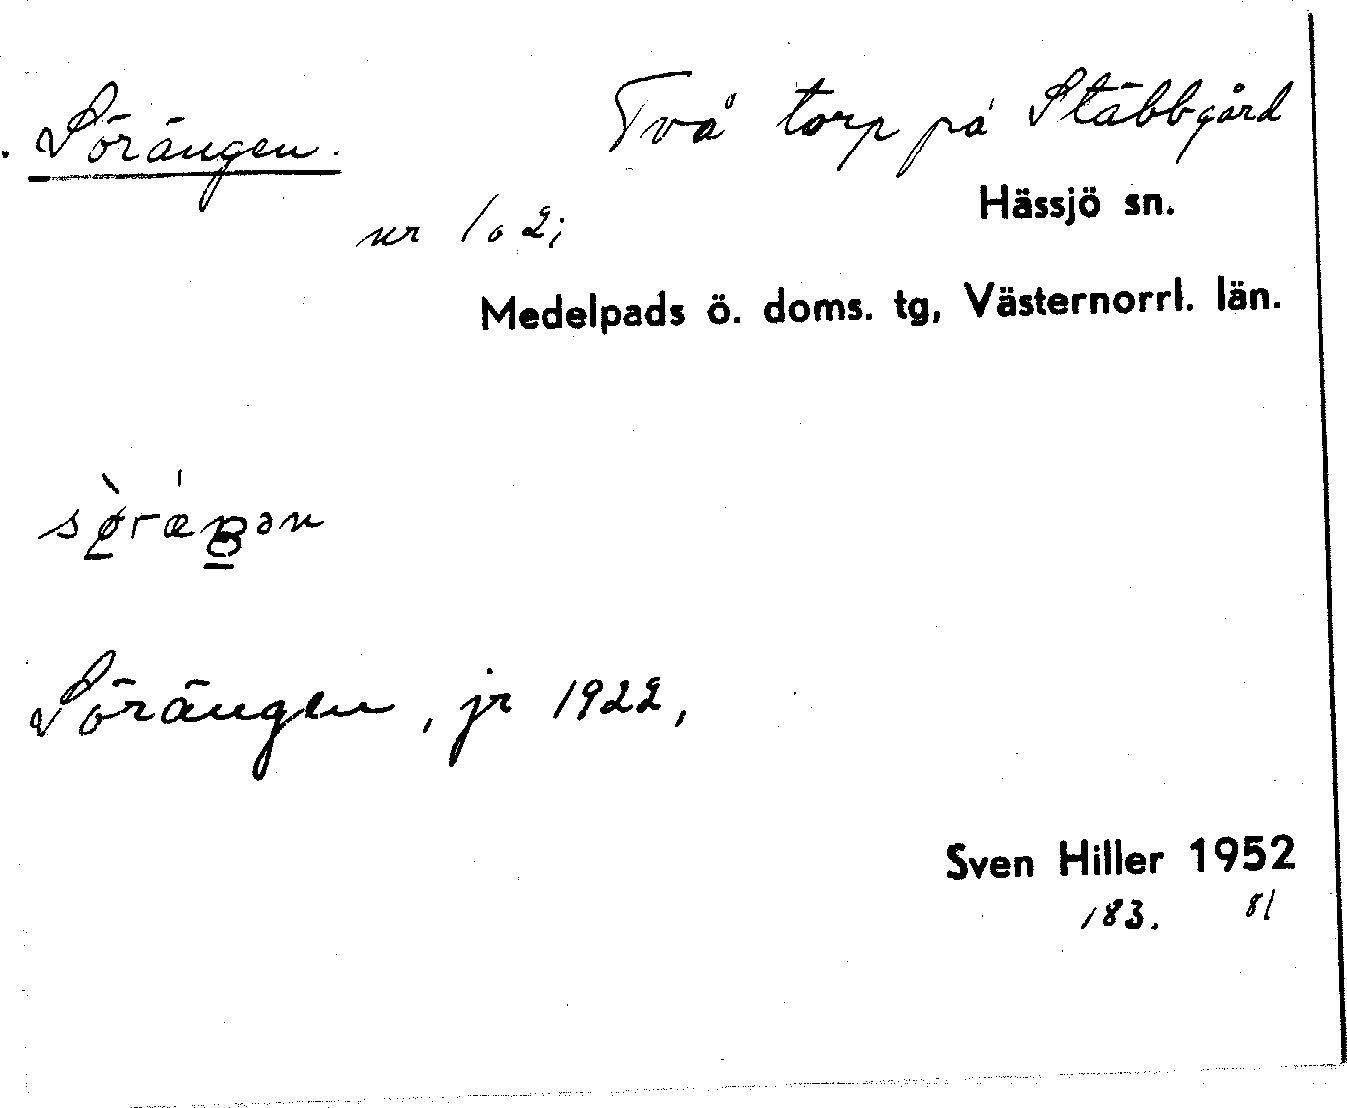 Sörängen.
Två torp på Stäbbgård
nr 1 o 2;
Hässjö sn.
Medelpads ö. doms. tg, Västernorrl. län.
Sörängen, jr 1922,
Sven Hiller 1952
183. 81